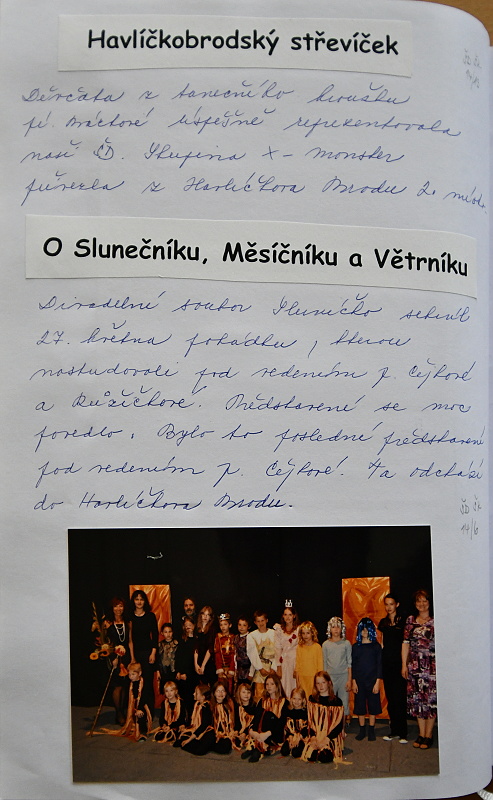 Havlíčkobrodský střevíček
Děvčata z tanečního kroužku
pí. Bráchové úspěšně reprezentovala
naší ŠD. Skupina X-monster
přivezla z Havlíčkova Brodu 2. místo.
O Slunečníku, Měsíčníku a Větrníku
Divadelní soubor Sluníčko sehrál
27. května pohádku, kterou
nastudovali pod vedením p. Čejkové
a Růžičkové. Představení se moc
povedlo. Bylo to poslední představení
pod vedením p. Čejkové. Ta odchází
do Havlíčkova Brodu.
ŠD ČK
14/6